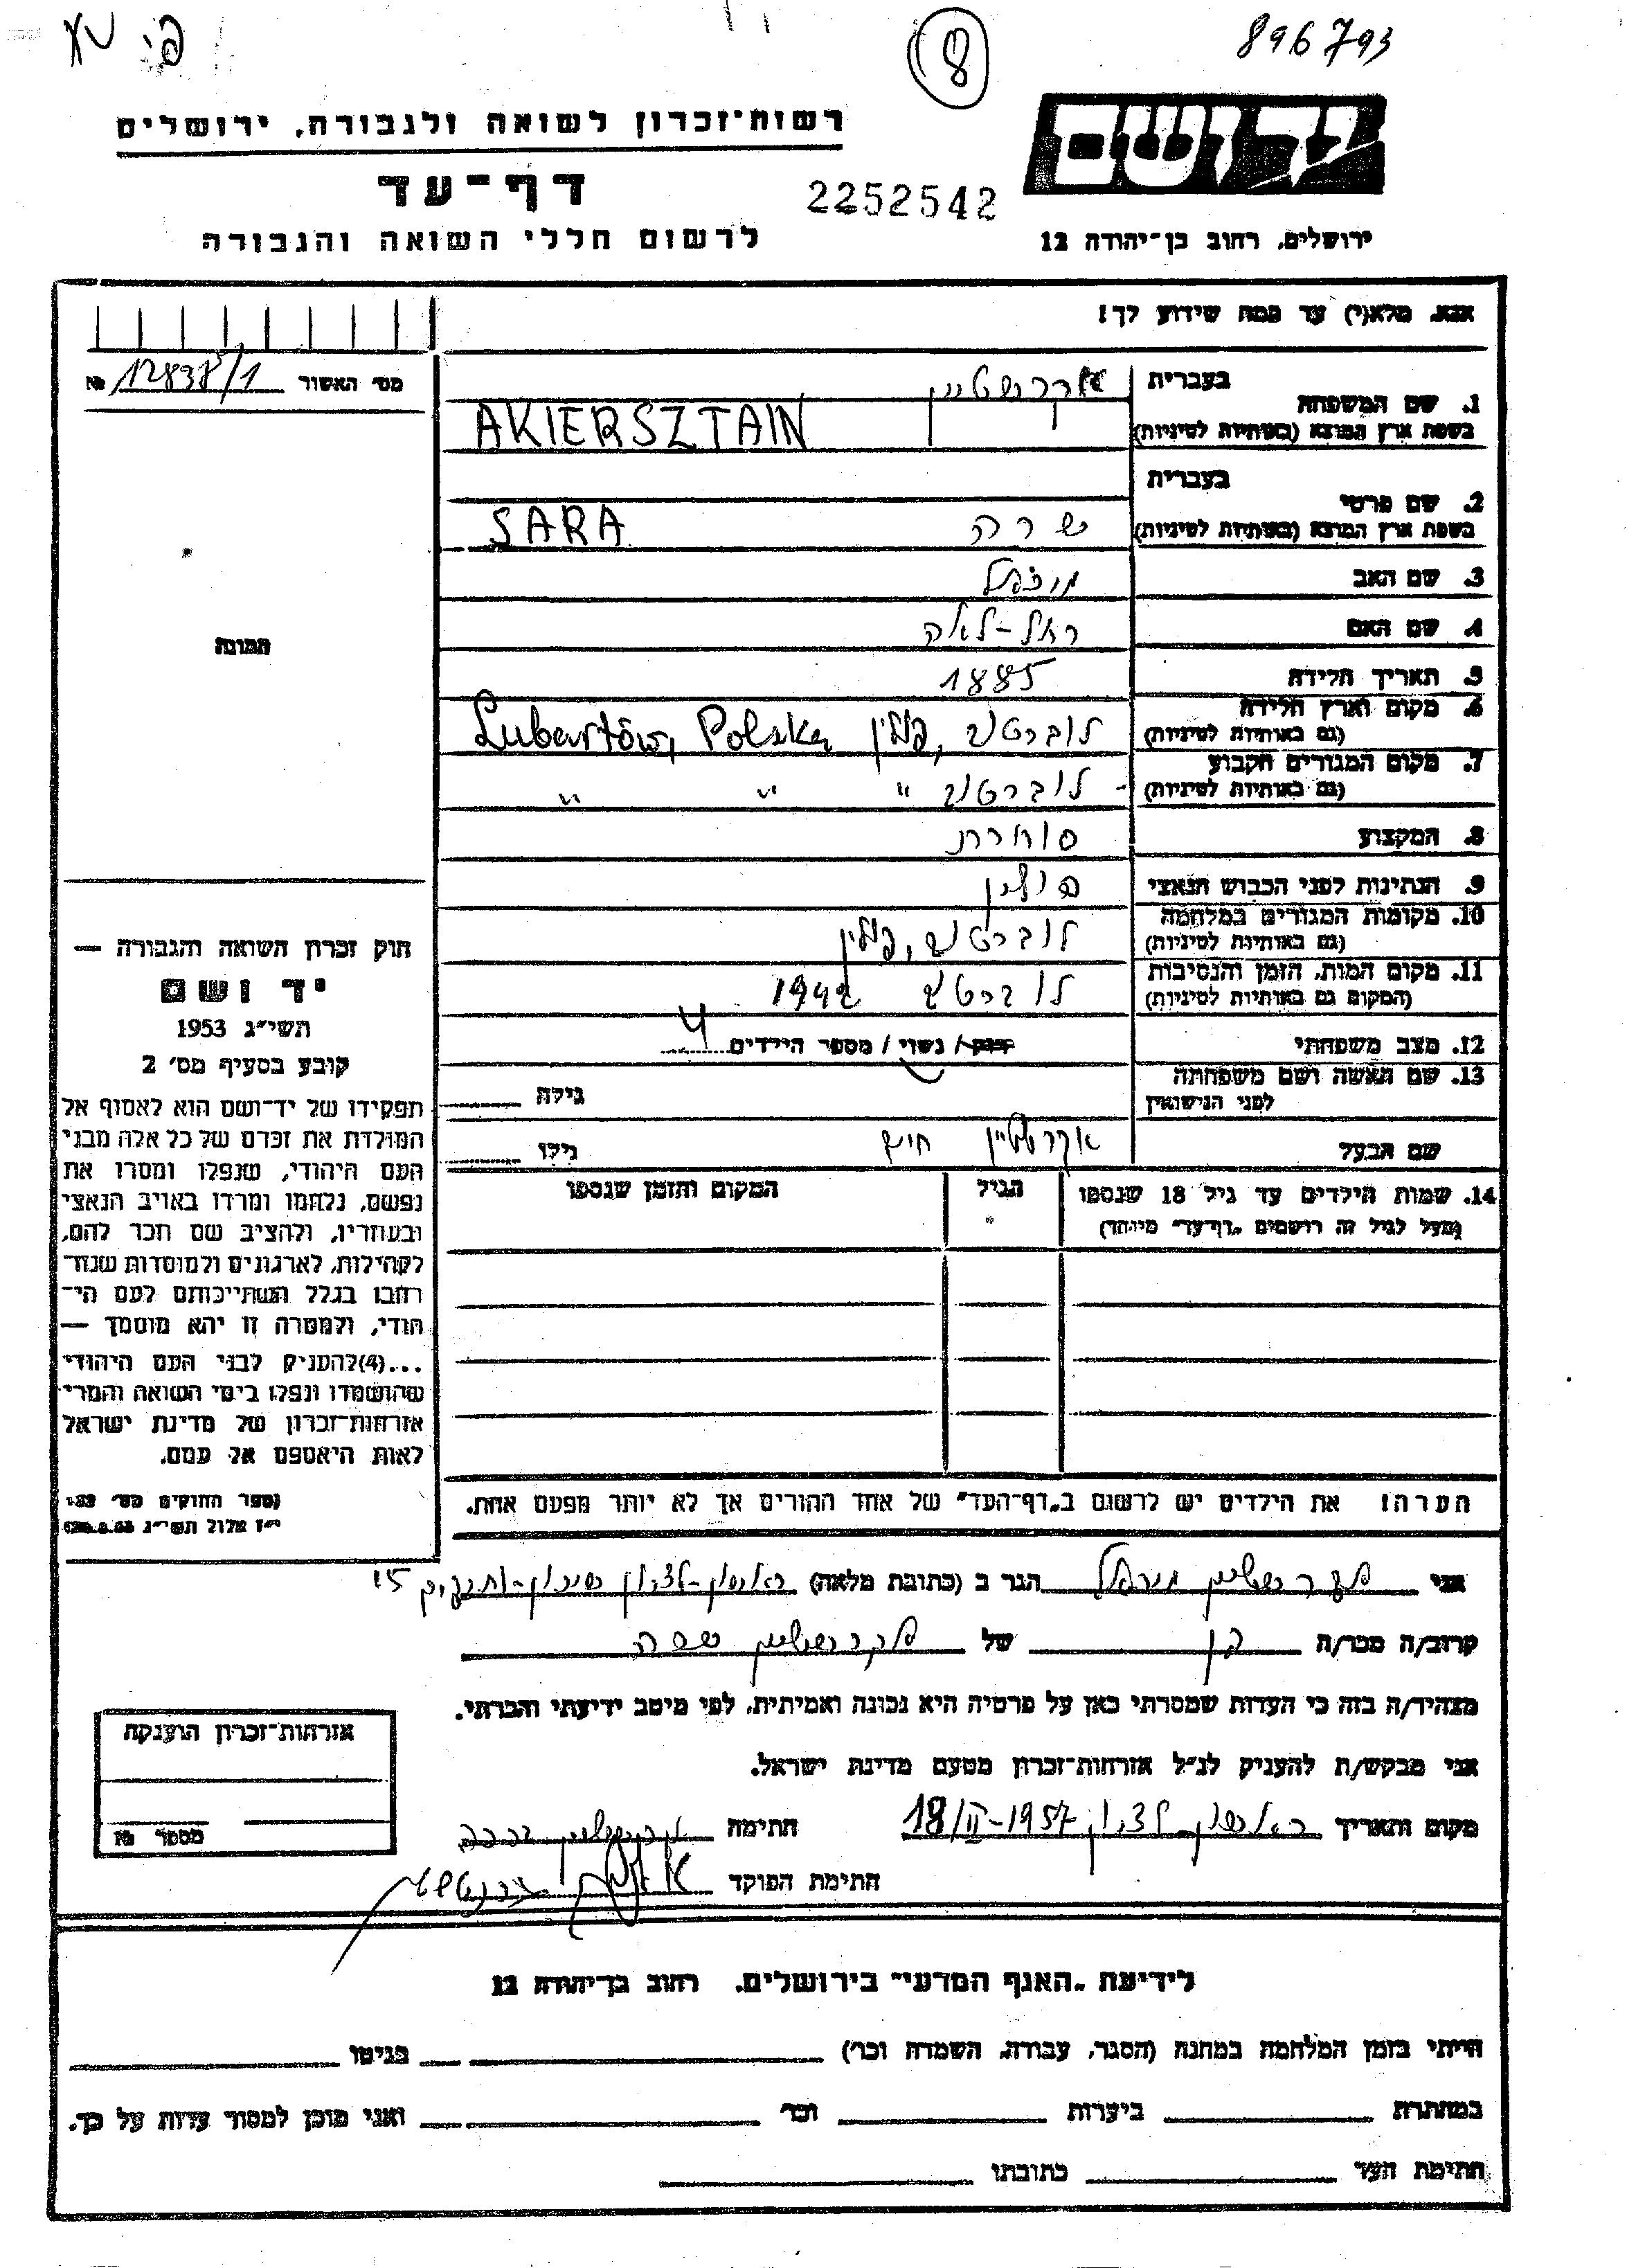 896793
8
יד ושם
רשות־זכרון לשואה ולגבורה, ירושלים
דף־עד
2252542
ירושלים, רחוב בן־יהודה 12
לרשום חללי השואה והגבורה
אנא, מלא(י) עד כמה שידוע לך!
מס׳ האשור 12838/1 №
1. שם המשפחה
בעברית אקרשטיין
בשפת ארץ המוצא (באותיות לטיניות) AKIERSZTAIN
2. שם פרטי
בעברית
בשפת ארץ המוצא (באותיות לטיניות) שרה SARA
3. שם האב
4. שם האם רחל-לאה
5. תאריך הלידה 1885
6. מקום וארץ הלידה
(גם באותיות לטיניות) לוברטוב, פולין Lubartów, Polska
7. מקום המגורים הקבוע
(גם באותיות לטיניות) לוברטוב " " "
8. המקצוע סוחרת
9. הנתינות לפני הכבוש הנאצי פולין
10. מקומות המגורים במלחמה
(גם באותיות לטיניות) לוברטוב, פולין
11. מקום המות, הזמן והנסיבות
(המקום גם באותיות לטיניות) לוברטוב 1942
12. מצב משפחתי רוק / נשוי / מספר הילדים 4
13. שם האשה ושם משפחתה
לפני הנישואין גילה
שם הבעל אקרשטיין חיים גילו
14. שמות הילדים עד גיל 18 שנספו הגיל המקום והזמן שנספו
(מעל לגיל זה רושמים „דף־עד״ מיוחד)
הערה! את הילדים יש לרשום ב„דף־העד״ של אחד ההורים אך לא יותר מפעם אחת.
תמונה
חוק זכרון השואה והגבורה —
יד ושם
תשי״ג 1953
קובע בסעיף מס׳ 2
תפקידו של יד־ושם הוא לאסוף אל
המולדת את זכרם של כל אלה מבני
העם היהודי, שנפלו ומסרו את
נפשם, נלחמו ומרדו באויב הנאצי
ובעוזריו, ולהציב שם וזכר להם,
לקהילות, לארגונים ולמוסדות שנח־
רבו בגלל השתייכותם לעם הי־
הודי, ולמטרה זו יהא מוסמך —
...(4)להעניק לבני העם היהודי
שהושמדו ונפלו בימי השואה והמרי
אזרחות־זכרון של מדינת ישראל
לאות היאספם אל עמם.
(ספר החוקים מס׳ 132
י״ז אלול תשי״ג 28.8.53)
אני הגר ב (כתובת מלאה) ראשון-לציון שיכון-ותיקים 15
קרוב/ה מכר/ה בן של אקרשטיין שרה
מצהיר/ה בזה כי העדות שמסרתי כאן על פרטיה היא נכונה ואמיתית, לפי מיטב ידיעתי והכרתי.
אני מבקש/ת להעניק לנ״ל אזרחות־זכרון מטעם מדינת ישראל.
מקום ותאריך ראשון לציון 18/II-1957 חתימה
חתימת הפוקד
אזרחות־זכרון הוענקה
מספר №
לידיעת „האגף המדעי״ בירושלים, רחוב בן־יהודה 12
הייתי בזמן המלחמה במחנה (הסגר, עבודה, השמדה וכו׳) בגיטו
במחתרת ביערות וכו׳ ואני מוכן למסור עדות על כך.
חתימת העד כתובתו